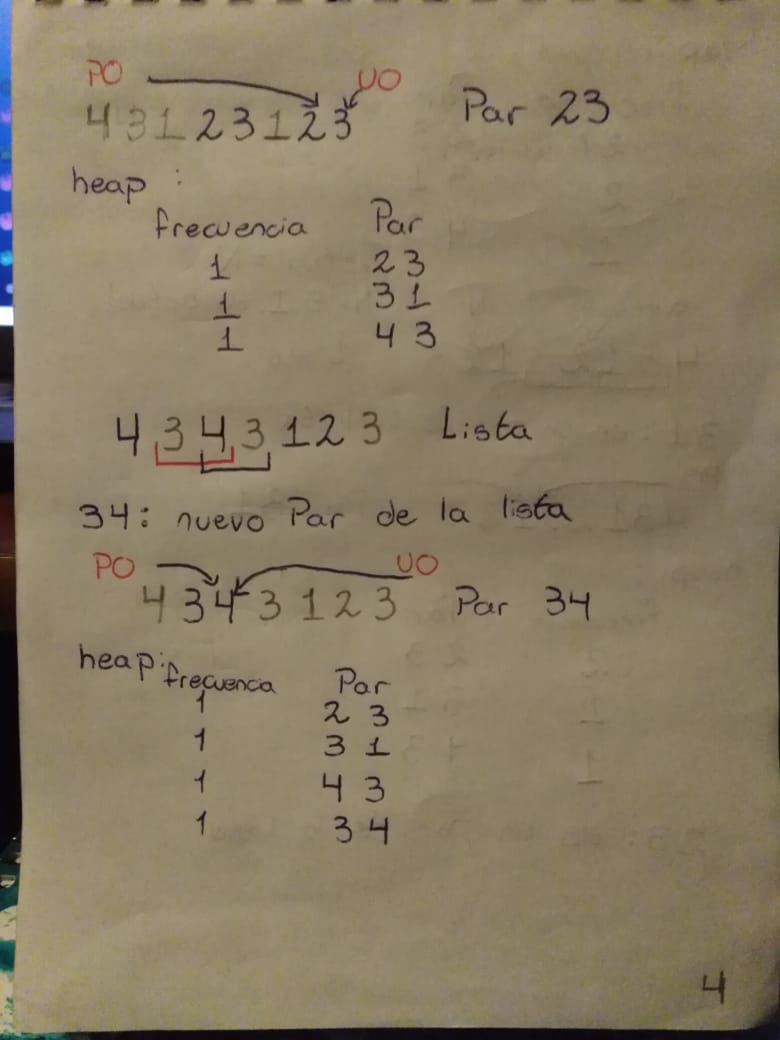 PO UO
4 3 1 2 3 1 2 3 Par 23
heap :
frecuencia Par
1 2 3
1 3 1
1 4 3
4 3 4 3 1 2 3 Lista
34: nuevo Par de la lista
PO UO
4 3 4 3 1 2 3 Par 34
heap:
frecuencia Par
1 2 3
1 3 1
1 4 3
1 3 4
4